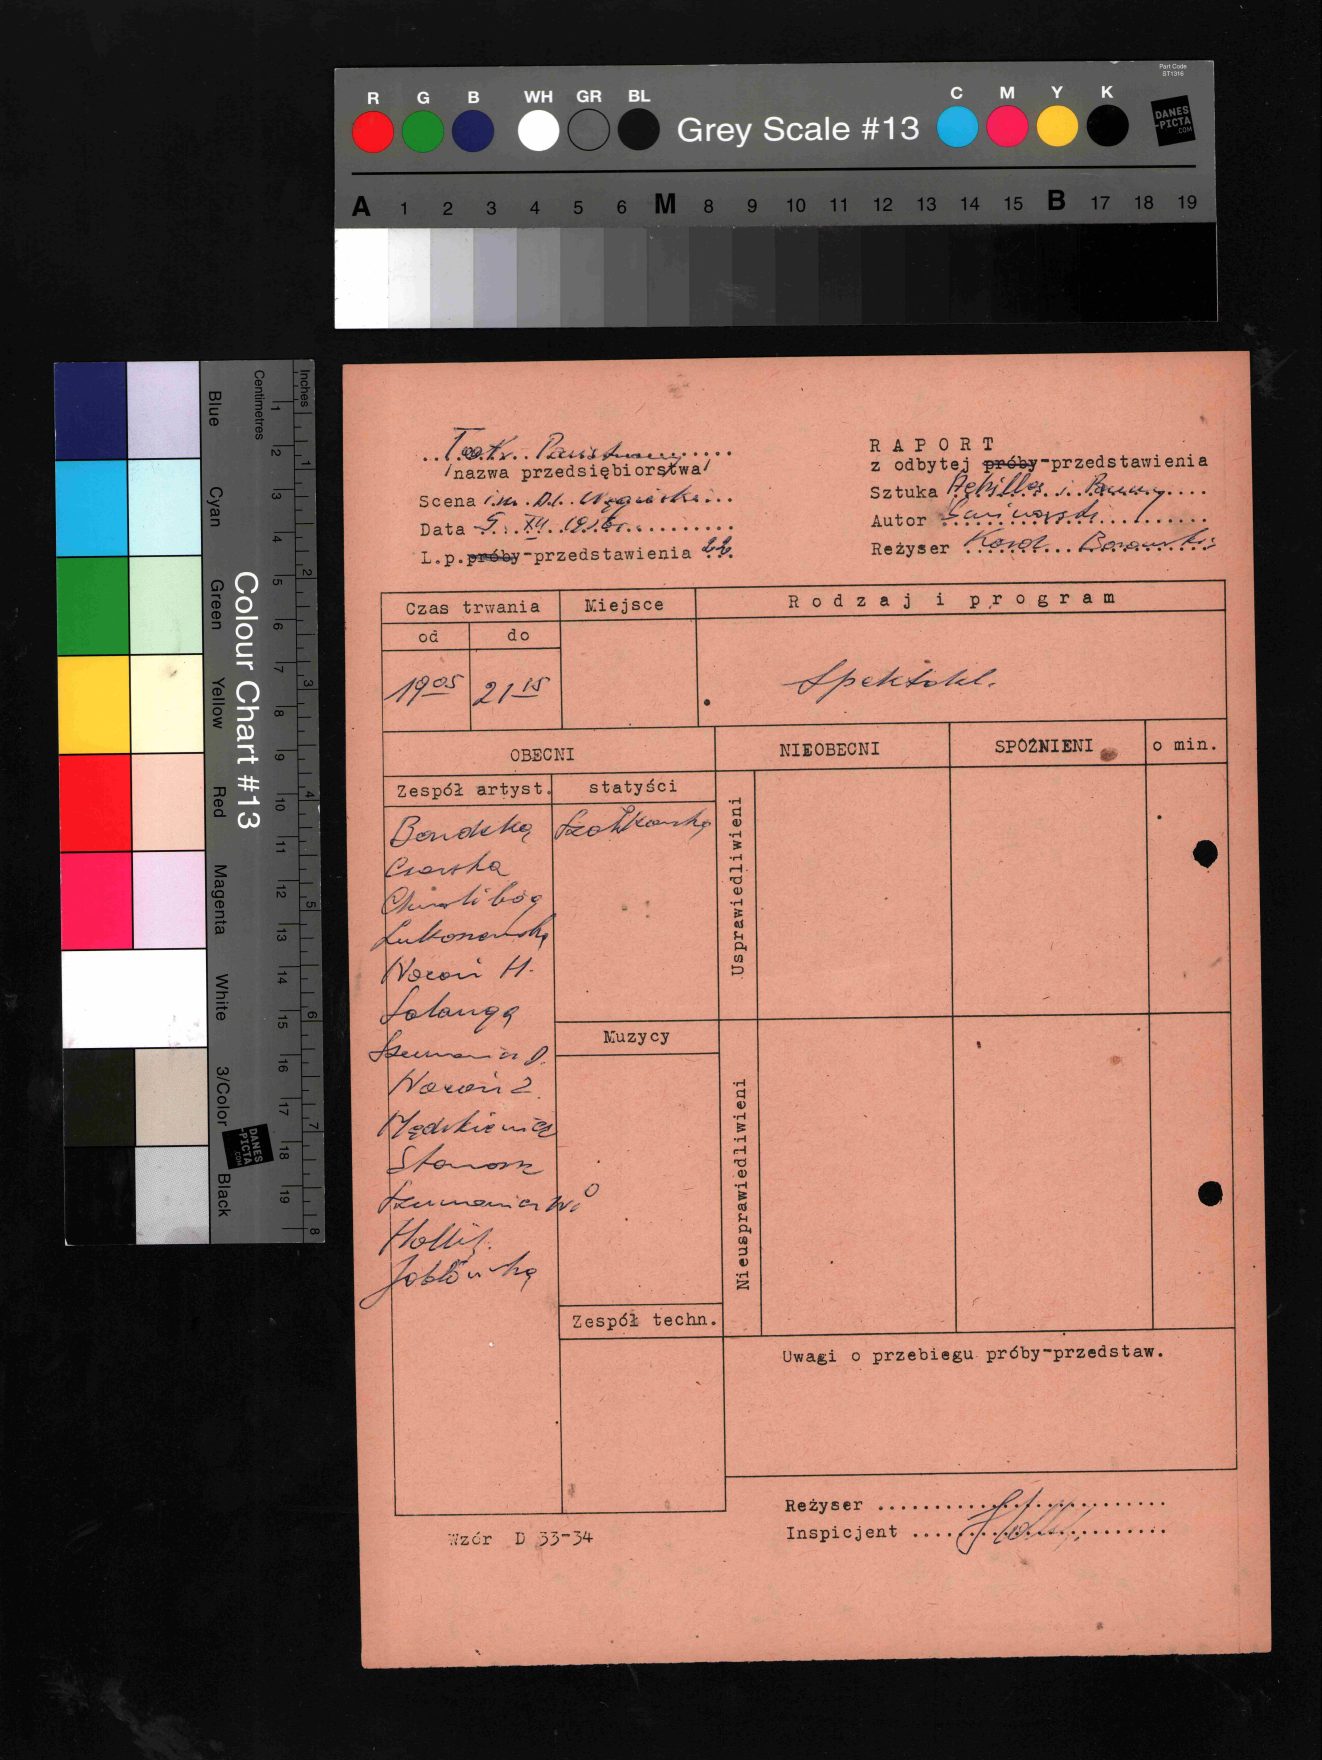 Part Code
ST1316
R G B WH GR BL
Grey Scale #13
C M Y K
DANES
-PICTA
.COM
A 1 2 3 4 5 6 M 8 9 10 11 12 13 14 15 B 17 18 19
Inches
Centimetres
Colour Chart #13
Blue
Cyan
Green
Yellow
Red
Magenta
White
3/Color
Black
1 2 3 4 5 6 7 8 9 10 11 12 13 14 15 16 17 18 19
1 2 3 4 5 6 7 8
DANES
-PICTA
.COM
Teatr Państwowy
/nazwa przedsiębiorstwa/
Scena im. Al. Węgierki
Data 5. XII. 1956
L.p. próby-przedstawienia 22
RAPORT
z odbytej próby-przedstawienia
Sztuka Achilles i Panny
Autor
Reżyser Karol Borowski
Czas trwania
od do
Miejsce
Rodzaj i program
19 05
21 15
Spektakl.
OBECNI
NIEOBECNI
SPÓŹNIENI
o min.
Zespół artyst.
statyści
Usprawiedliwieni
Czarska
Łukaszewska
H.
Szumowicz D.
Z.
Mędrkiewicz
Hollitz.
Jabłońska
Muzycy
Nieusprawiedliwieni
Zespół techn.
Uwagi o przebiegu próby-przedstaw.
Reżyser
Inspicjent
Wzór D 33-34